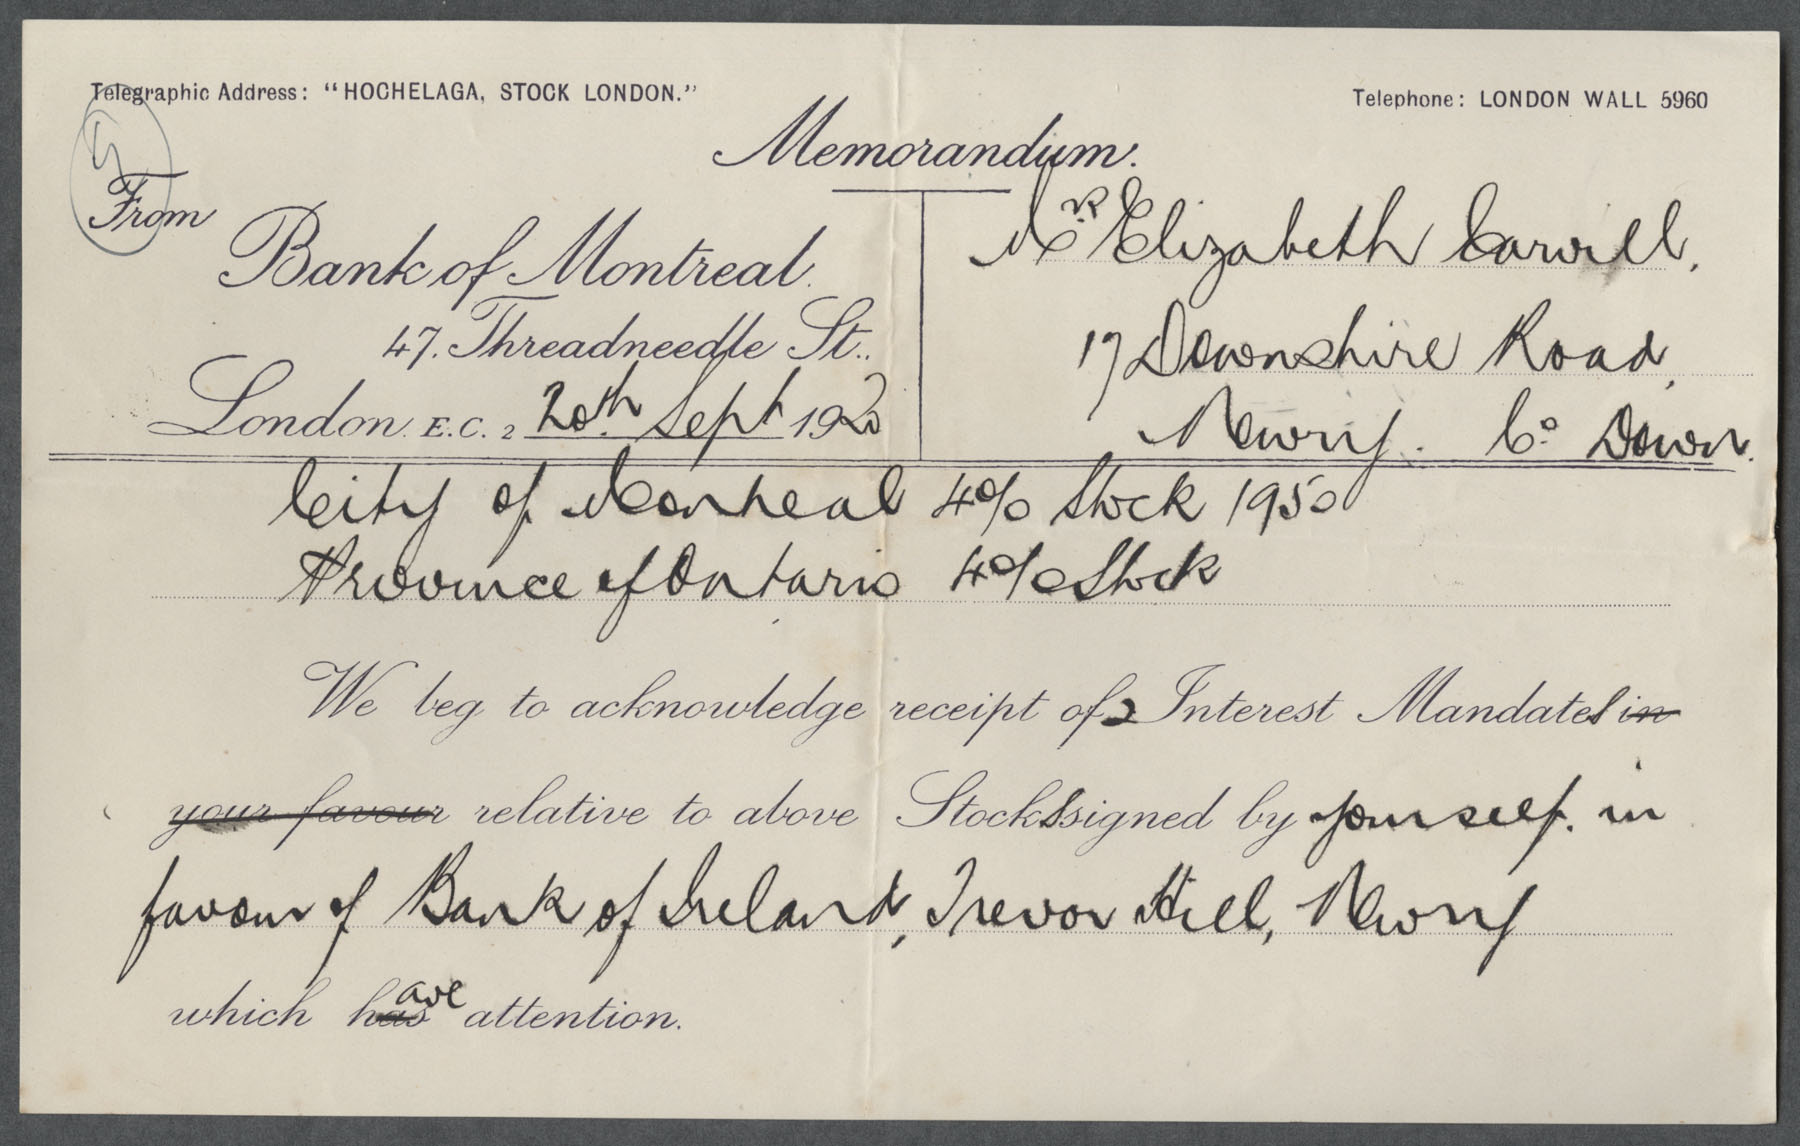 Telegraphic Address: "HOCHELAGA, STOCK LONDON."
Telephone: LONDON WALL 5960
5
Memorandum.
From
Bank of Montreal.
47. Threadneedle St..
London. E.C. 2 20th Sept 1920
Mrs Elizabeth Carvill,
17 Devonshire Road,
Newry. Co Down.
City of Montreal 4% Stock 1950
Province of Ontario 4% Stock
We beg to acknowledge receipt of 2 Interest Mandates in
your favour relative to above Stocks signed by yourself. in
favour of Bank of Ireland, Trevor Hill, Newry
which has ave attention.